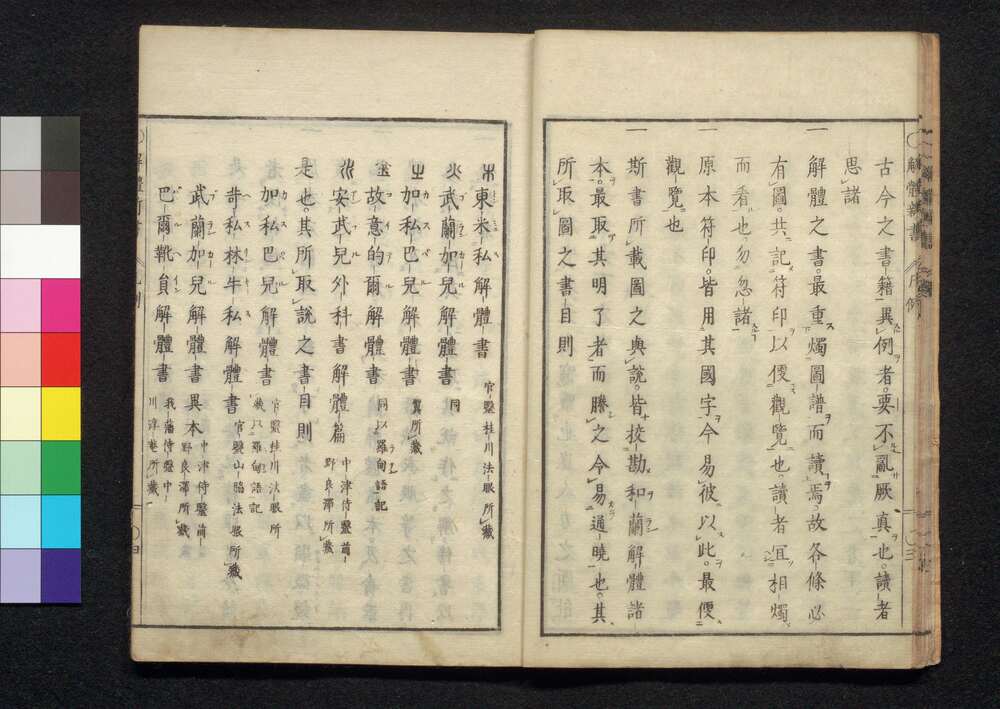 古今之書籍異例者要不亂厥真也讀者
思諸
一解體之書最重燭圖譜而讀焉故各條必
有圖共記符印以便觀覽也讀者宜相燭
而看也勿忽諸
一原本符印皆用其國字今易彼以此最便
觀覽也
一斯書所載圖之與說皆校勘和蘭解體諸
本最取其明了者而謄之令易通曉也其
所取圖之書目則
東米私解體書 官醫桂川法眼所藏
火武蘭加兒解體書 同
加私巴兒解體書 翼所藏
金故意的爾解體書 同以羅甸語記
安武兒外科書解體篇 中津侍醫前野良澤所藏
是也其所取說之書目則
加私巴兒解體書 官醫桂川法眼所藏以羅甸語記
苛私林牛私解體書 官醫山脇法眼所藏
武蘭加兒解體書異本 中津侍醫前野良澤所藏
巴爾靴員解體書 我藩侍醫中川淳庵所藏
解體新書 序例 三
四